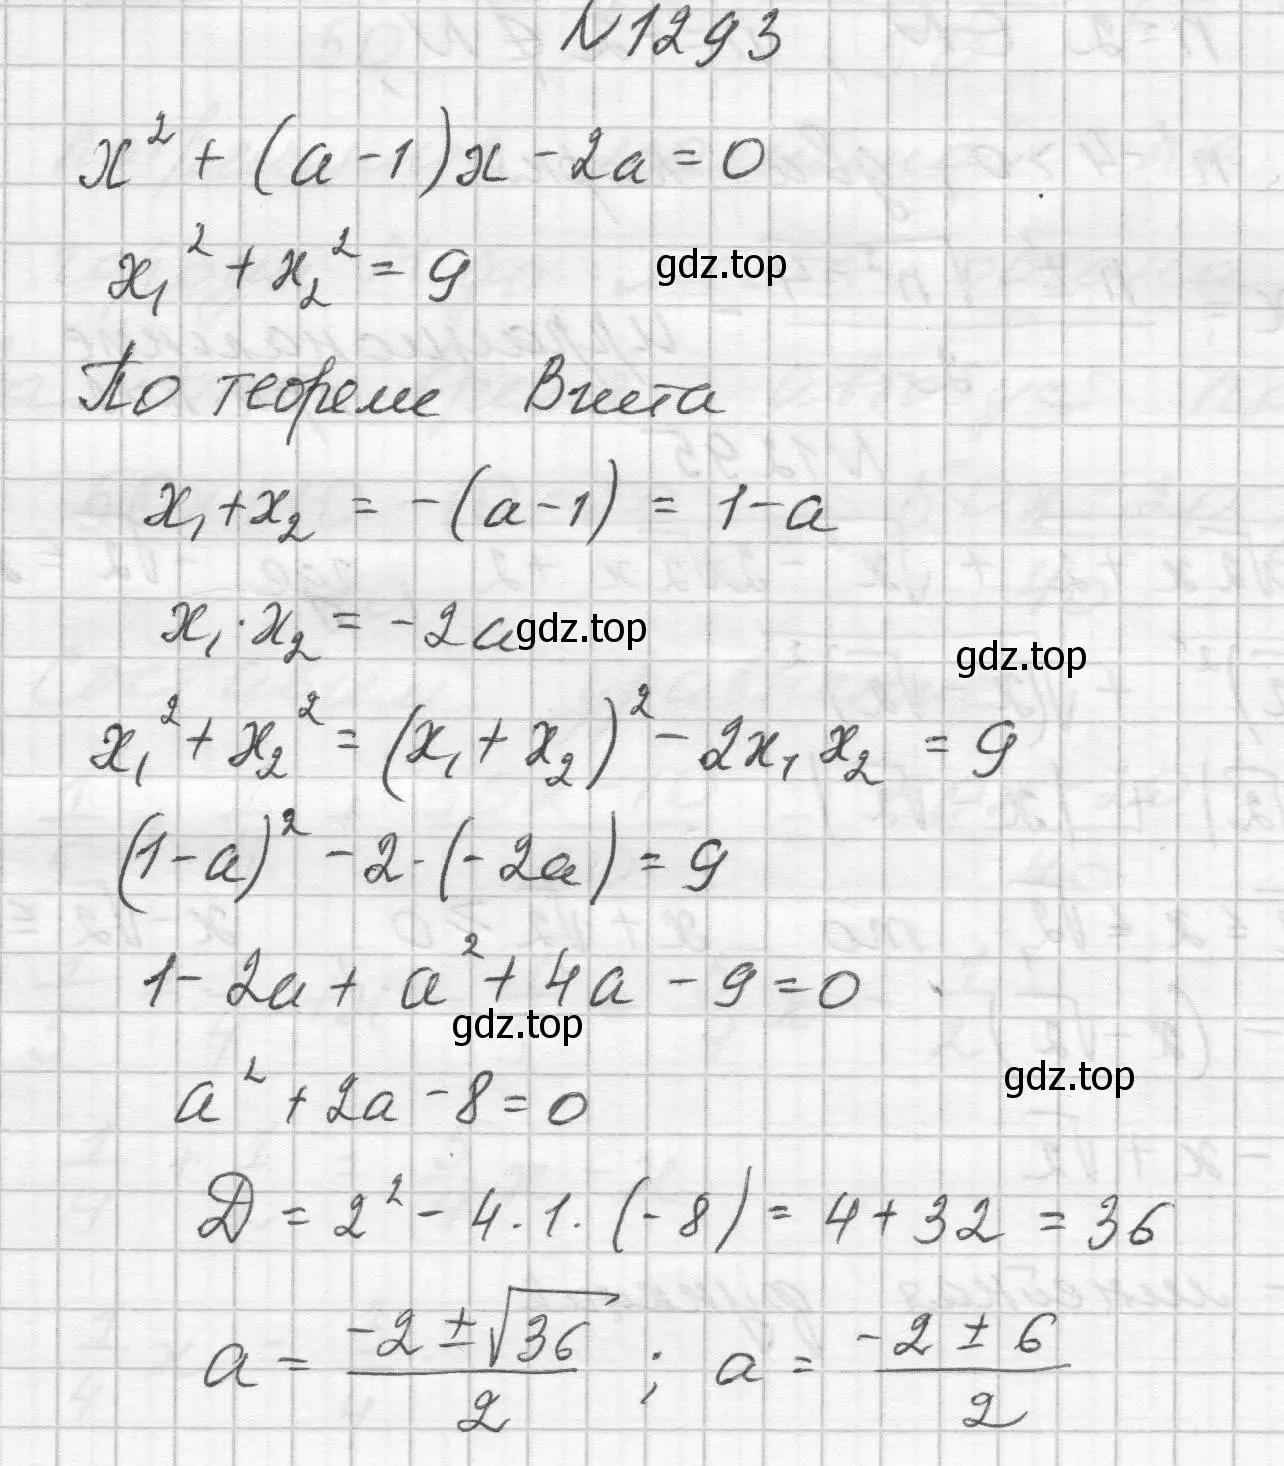 N1293
x² + (a - 1)x - 2a = 0
x₁² + x₂² = 9
gdz.top
По теореме Виета
x₁ + x₂ = -(a - 1) = 1 - a
x₁ · x₂ = -2a
gdz.top
gdz.top
x₁² + x₂² = (x₁ + x₂)² - 2x₁ x₂ = 9
(1 - a)² - 2 · (-2a) = 9
1 - 2a + a² + 4a - 9 = 0
gdz.top
gdz.top
a² + 2a - 8 = 0
D = 2² - 4 · 1 · (-8) = 4 + 32 = 36
a = (-2 ± √36)/2 ; a = (-2 ± 6)/2